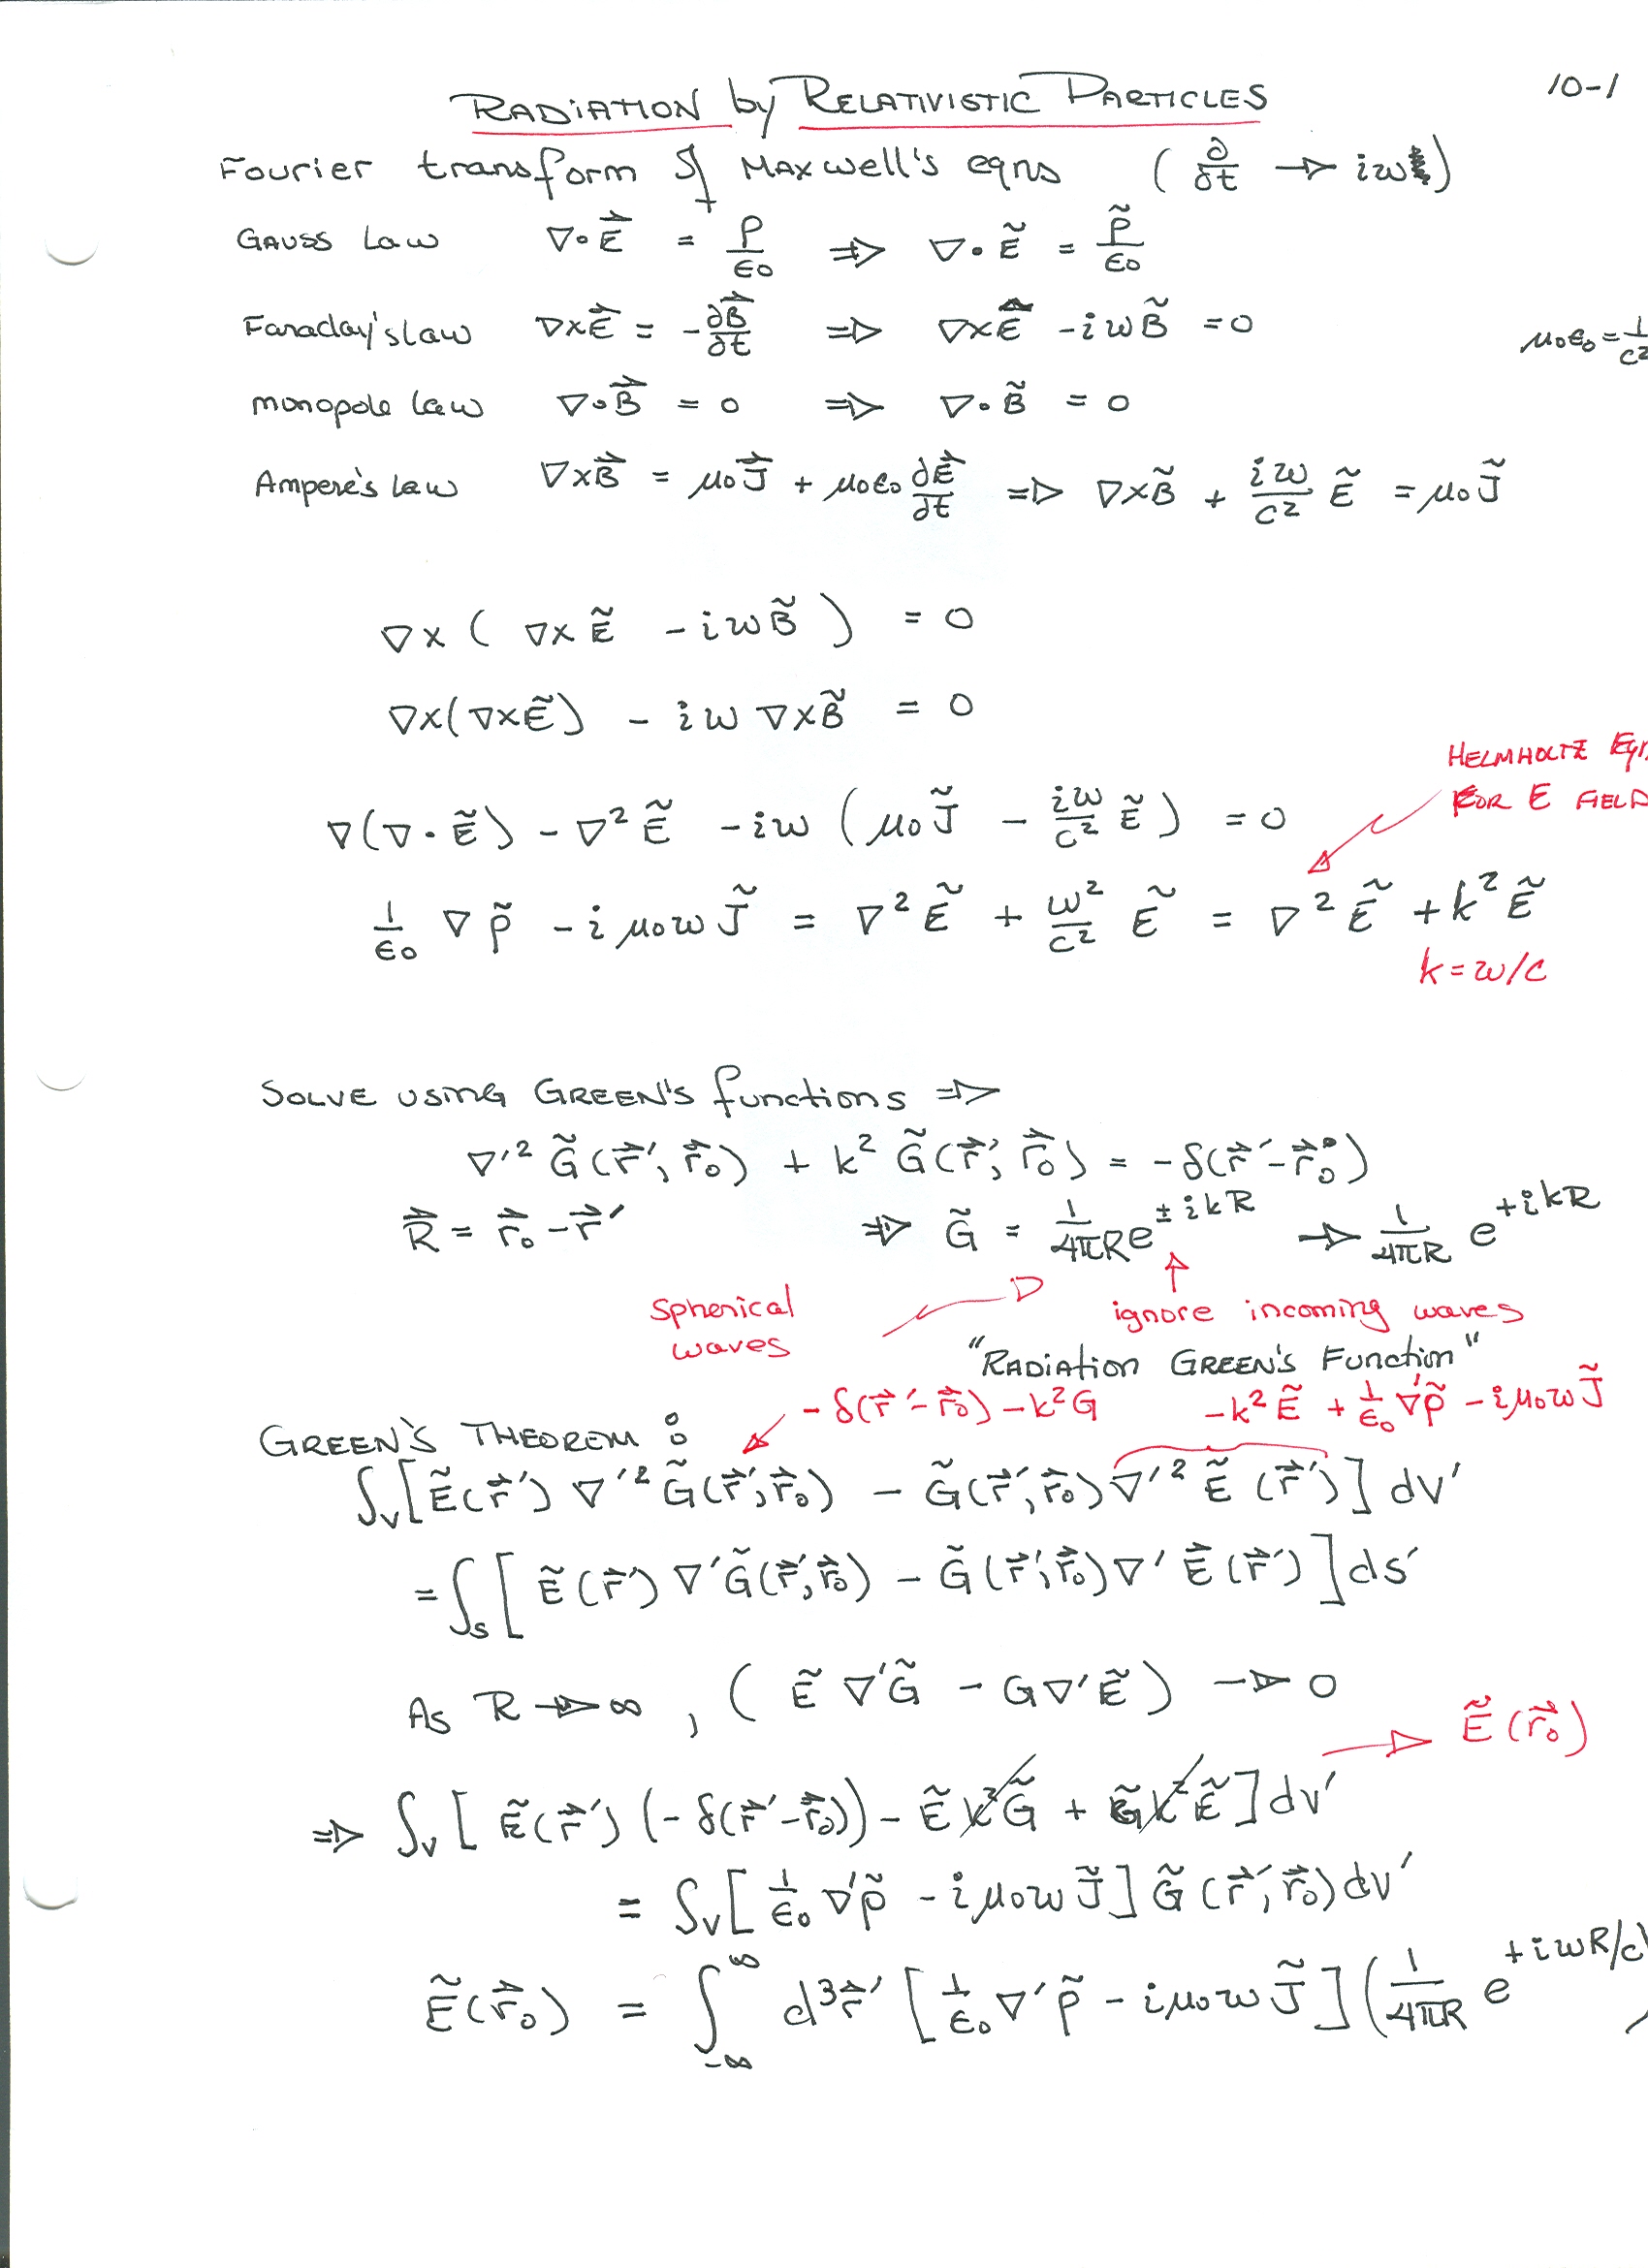 RADIATION by RELATIVISTIC PARTICLES 10-1
Fourier transform of Maxwell's eqns ( ∂/∂t → iω )
GAUSS Law ∇·E⃗ = ρ/ε₀ ⇒ ∇·Ẽ = ρ̃/ε₀
Faraday's law ∇×E⃗ = -∂B⃗/∂t ⇒ ∇×Ẽ - iωB̃ = 0
μ₀ε₀ = 1/c²
monopole law ∇·B⃗ = 0 ⇒ ∇·B̃ = 0
Ampere's Law ∇×B⃗ = μ₀J⃗ + μ₀ε₀ ∂E⃗/∂t ⇒ ∇×B̃ + iω/c² Ẽ = μ₀J̃
∇×( ∇×Ẽ - iωB̃ ) = 0
∇×(∇×Ẽ) - iω ∇×B̃ = 0
HELMHOLTZ Eqn
FOR E FIELD
∇(∇·Ẽ) - ∇²Ẽ - iω ( μ₀J̃ - iω/c² Ẽ ) = 0
1/ε₀ ∇ρ̃ - iμ₀ωJ̃ = ∇²Ẽ + ω²/c² Ẽ = ∇²Ẽ + k²Ẽ
k = ω/c
SOLVE USING GREEN'S functions ⇒
∇'² G̃(r⃗', r⃗₀) + k² G̃(r⃗', r⃗₀) = -δ(r⃗'-r⃗₀)
R⃗ = r⃗₀ - r⃗' ⇒ G̃ = 1/4πR e^±ikR → 1/4πR e^+ikR
Spherical waves
ignore incoming waves
"RADIATION GREEN'S Function"
-δ(r⃗'-r⃗₀) - k²G -k²Ẽ + 1/ε₀ ∇'ρ̃ - iμ₀ωJ̃
GREEN'S THEOREM :
∫v[Ẽ(r⃗') ∇'² G̃(r⃗', r⃗₀) - G̃(r⃗', r⃗₀) ∇'² Ẽ(r⃗')] dv'
= ∫s [ Ẽ(r⃗') ∇'G̃(r⃗', r⃗₀) - G̃(r⃗', r⃗₀) ∇' Ẽ(r⃗') ] ds'
As R → ∞ , ( Ẽ ∇'G̃ - G∇'Ẽ ) → 0
Ẽ(r⃗₀)
⇒ ∫v [ Ẽ(r⃗') (-δ(r⃗'-r⃗₀)) - Ẽ k²G̃ + G̃k²Ẽ ] dv'
= ∫v [ 1/ε₀ ∇'ρ̃ - iμ₀ωJ̃ ] G̃(r⃗', r⃗₀) dv'
Ẽ(r⃗₀) = ∫_-∞^∞ d³r⃗' [ 1/ε₀ ∇'ρ̃ - iμ₀ωJ̃ ] ( 1/4πR e^+iωR/c )